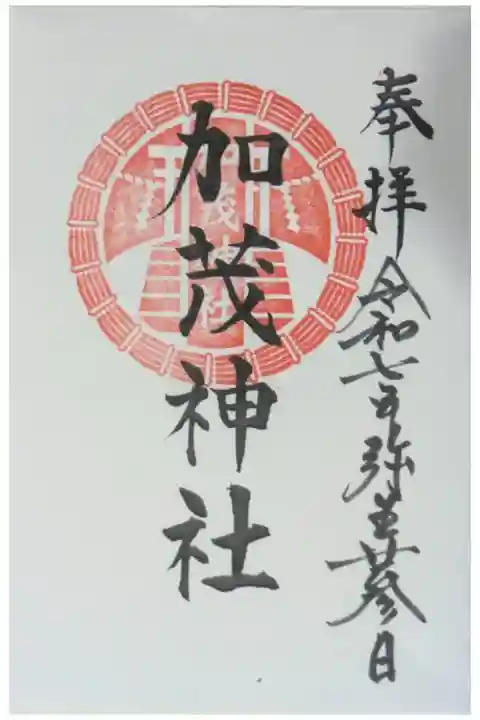 奉拝 令和七年弥生廿参日
加茂神社
加茂神社